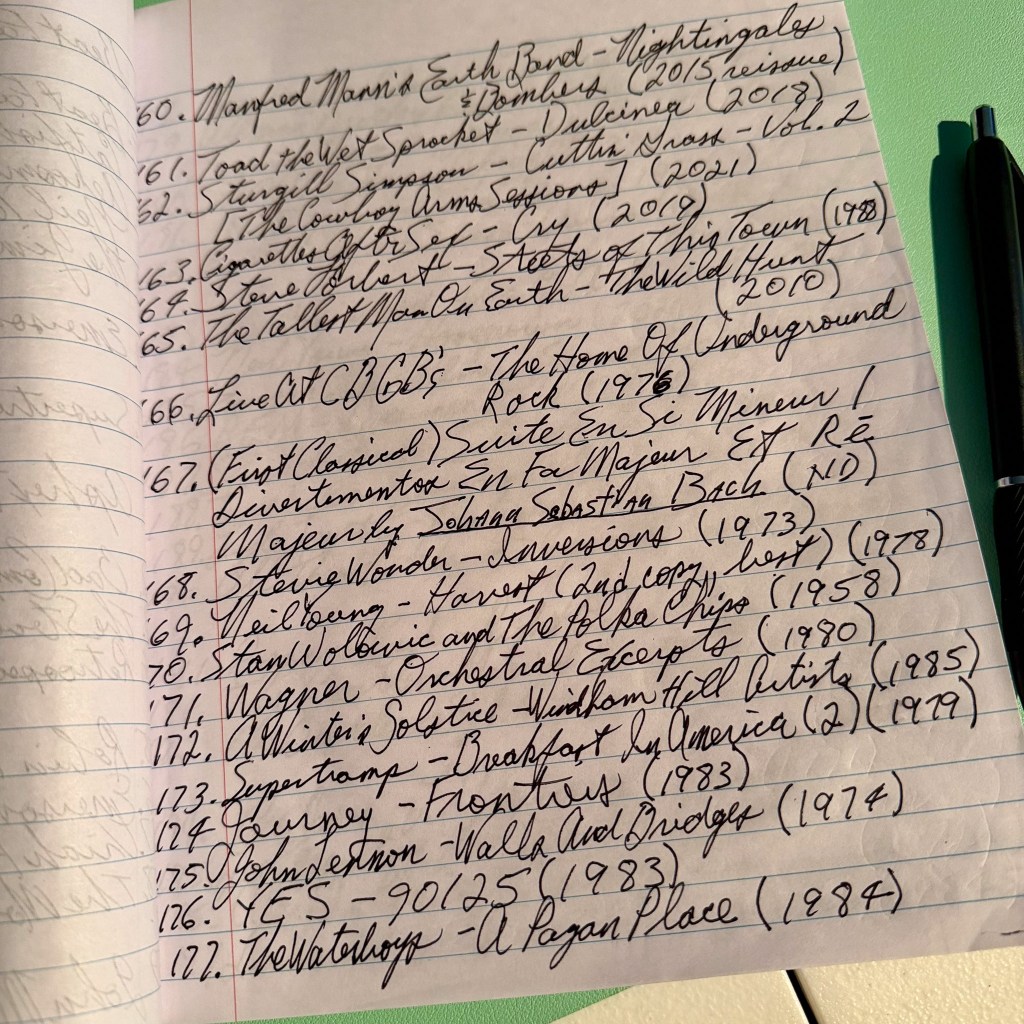 160. Manfred Mann's Earth Band - Nightingales
& Bombers (2015, reissue)
161. Toad the Wet Sprocket - Dulcinea (2018)
62. Sturgill Simpson - Cuttin Grass - Vol. 2
[The Cowboy Arms Sessions] (2021)
163. Cigarettes After Sex - Cry (2019)
64. Steve Forbert - Streets of This Town (1988)
65. The Tallest Man On Earth - The Wild Hunt
(2010)
66. Live At CBGB's - The Home Of Underground
Rock (1976)
167. (First Classical) Suite En Si Mineur /
Divertimentox En Fa Majeur Et Ré
Majeur by Johann Sebastian Bach (ND)
168. Stevie Wonder - Inversions (1973)
69. Neil Young - Harvest (2nd copy, best) (1978)
70. Stan Wolowic and The Polka Chips (1958)
171. Wagner - Orchestral Excerpts (1980)
172. A Winter's Solstice - Windham Hill Artists (1985)
173. Supertramp - Breakfast In America (2) (1979)
174 Journey - Frontiers (1983)
175. John Lennon - Walls And Bridges (1974)
176. YES - 90125 (1983)
177. The Waterboys - A Pagan Place (1984)